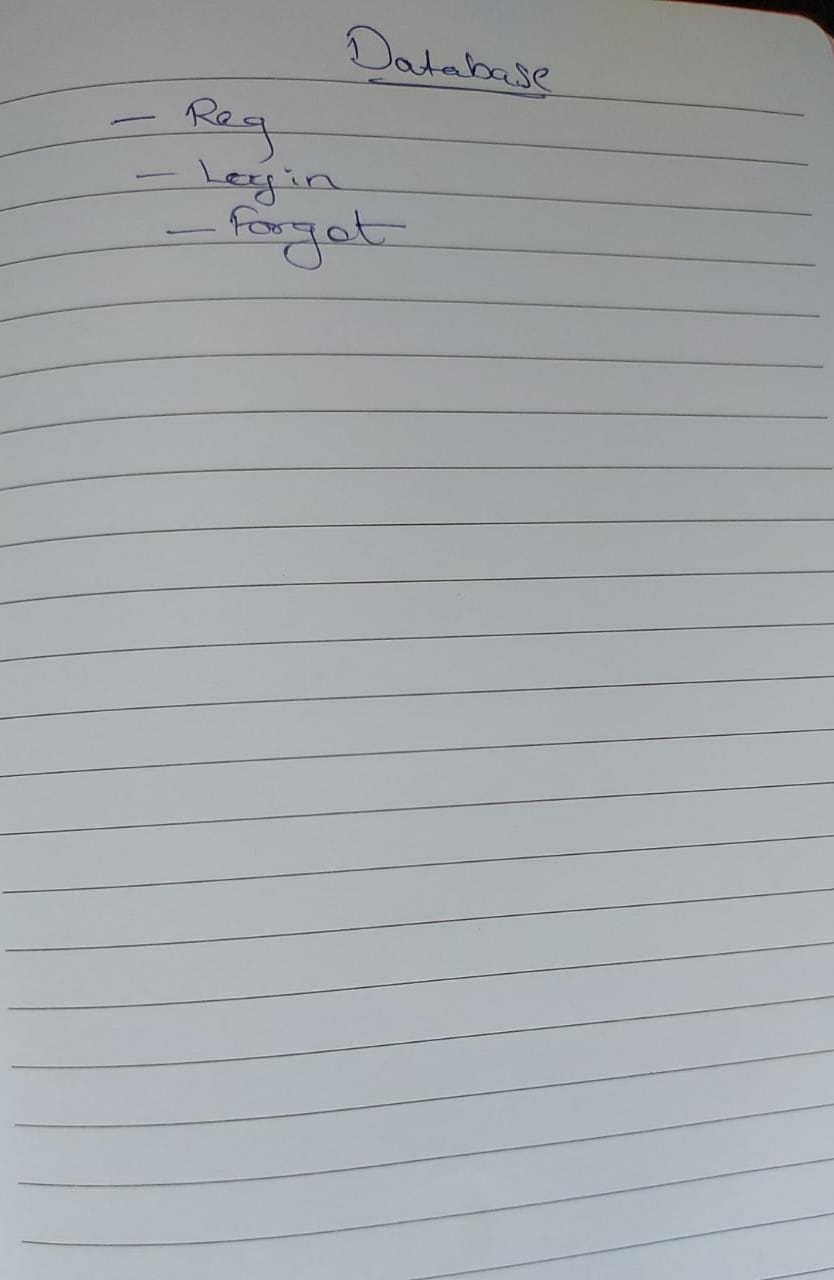 Database
- Reg
- Login
- Forgot